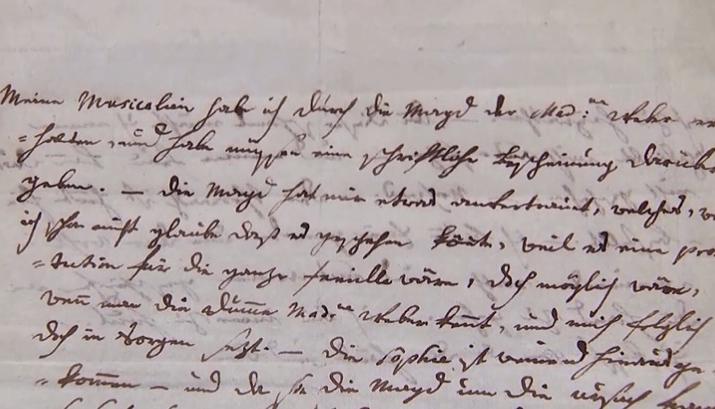 Meine Musicalien habe ich durch die Magd der Mad:me Weber er
=halten, und habe müssen eine schriftliche Bescheinung darübe
geben. — die Magd hat mir etwas anvertrauet, welches, w
ich schon nicht glaube daß es geschehen könte, weil es eine pro
=stitution für die ganze familie wäre, doch möglich wäre,
wen man die dumme Mad:me Weber kennt, und mich folglich
doch in Sorgen setzt. — die Sophie ist weinend hinausge
=kommen — und da sie die Magd um die ursach